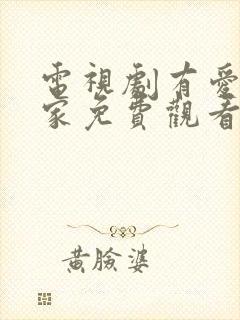 電視劇有愛
家免費觀看
黃臉婆